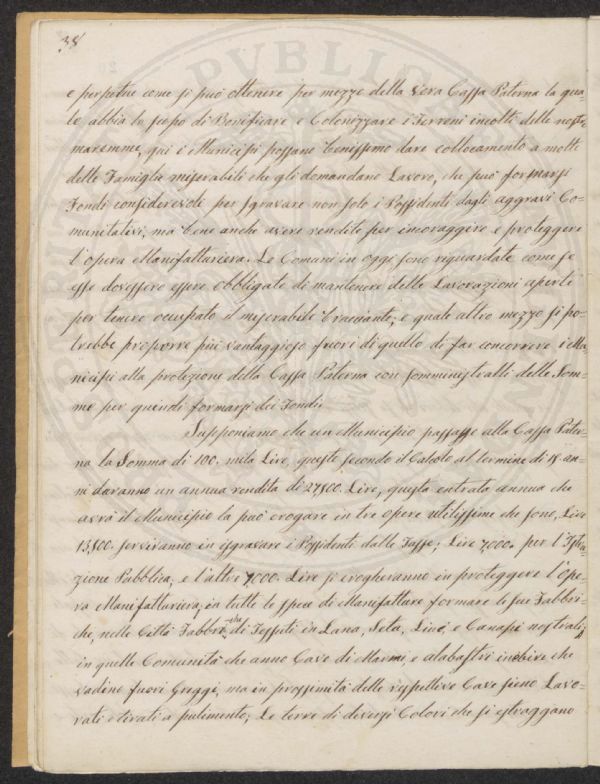 38
e perpetue come si può ottenere per mezzo della vera Cassa Paterna la qua=
le abbia lo scopo di Bonificare e Colonizzare i Terreni incolti delle nostre
maremme, qui i Municipi possano benissimo dare collocamento a molte
delle Famiglie miserabili che gli domandano Lavoro, che può formarsi
Fondi considerevoli per sgravare non solo i Possidenti dagli aggravi Co=
munitativi, ma bene anche avere rendite per incoraggire e proteggere
l'opera Manifatturiera. Le Comuni in oggi sono riguardate come se
esse dovessero essere obbligate di mantenere delle Lavorazioni aperte
per tenere occupato il miserabile bracciante, e quale altro mezzo si po=
trebbe proporre più vantaggioso fuori di quello di far concorrere i Mu
nicipi alla protezione della Cassa Paterna con somministralli delle Som=
me per quindi formarsi dei Fondi.
Supponiamo che un Municipio passasse alla Cassa Pater=
na la Somma di 100. mila Lire, queste secondo il Calcolo al termine di 18. an=
ni daranno un annua rendita di 27800. Lire, questa entrata annua che
avrà il Municipio la può erogare in tre opere utilissime che sono, Lire
13,800. serviranno in isgravare i Possidenti dalle Tasse; Lire 7,000. per l'Istru=
zione Pubblica, e l'altre 7,000. Lire si erogheranno in proteggere l'Ope=
ra Manifatturiera, in tutte le specie di Manifatture formare le sue Fabbri=
che, nelle Città Fabbriche di Tessuti in Lana, Seta, Lino, e Canape nostrali,
in quelle Comunità che anno Cave di Marmi, e alabastri inibire che
vadino fuori Greggi, ma in prossimità delle respettive Cave sieno Lavo=
rati e tirati a pulimento; Le terre di diversi Colori che si estraggano